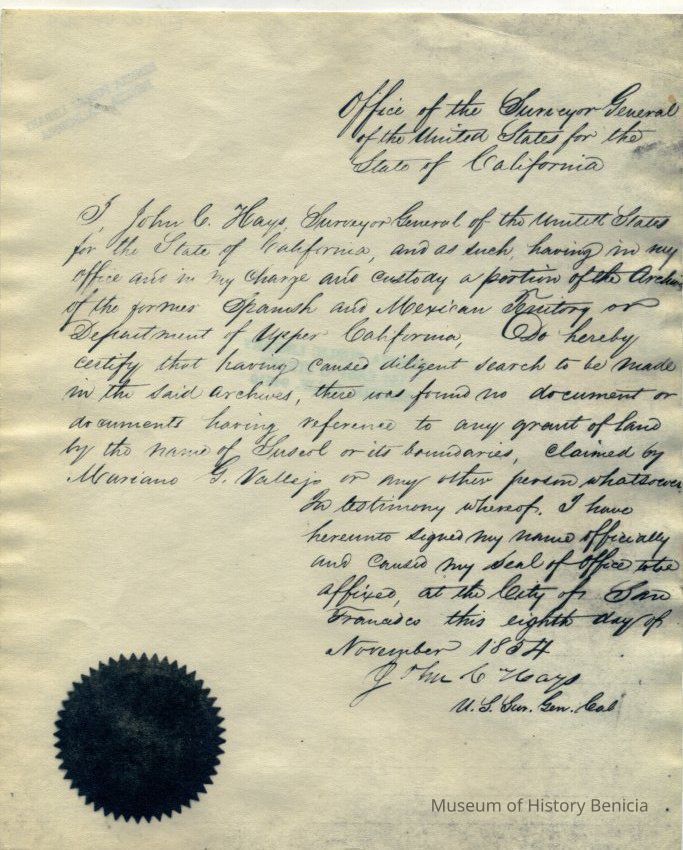 Office of the Surveyor General
of the United States for the
State of California
I, John C. Hays, Surveyor General of the United States
for the State of California, and as such, having in my
office and in my charge and custody a portion of the Archives
of the former Spanish and Mexican Territory or
Department of Upper California, Do hereby
certify that having caused diligent search to be made
in the said archives, there was found no document or
documents having reference to any grant of land
by the name of Suscol or its boundaries, claimed by
Mariano G. Vallejo or any other person whatsoever
In testimony whereof, I have
hereunto signed my name officially
and caused my seal of office to be
affixed, at the City of San
Francisco this eighth day of
November 1854
John C Hays
U. S. Sur. Gen. Cal
Museum of History Benicia